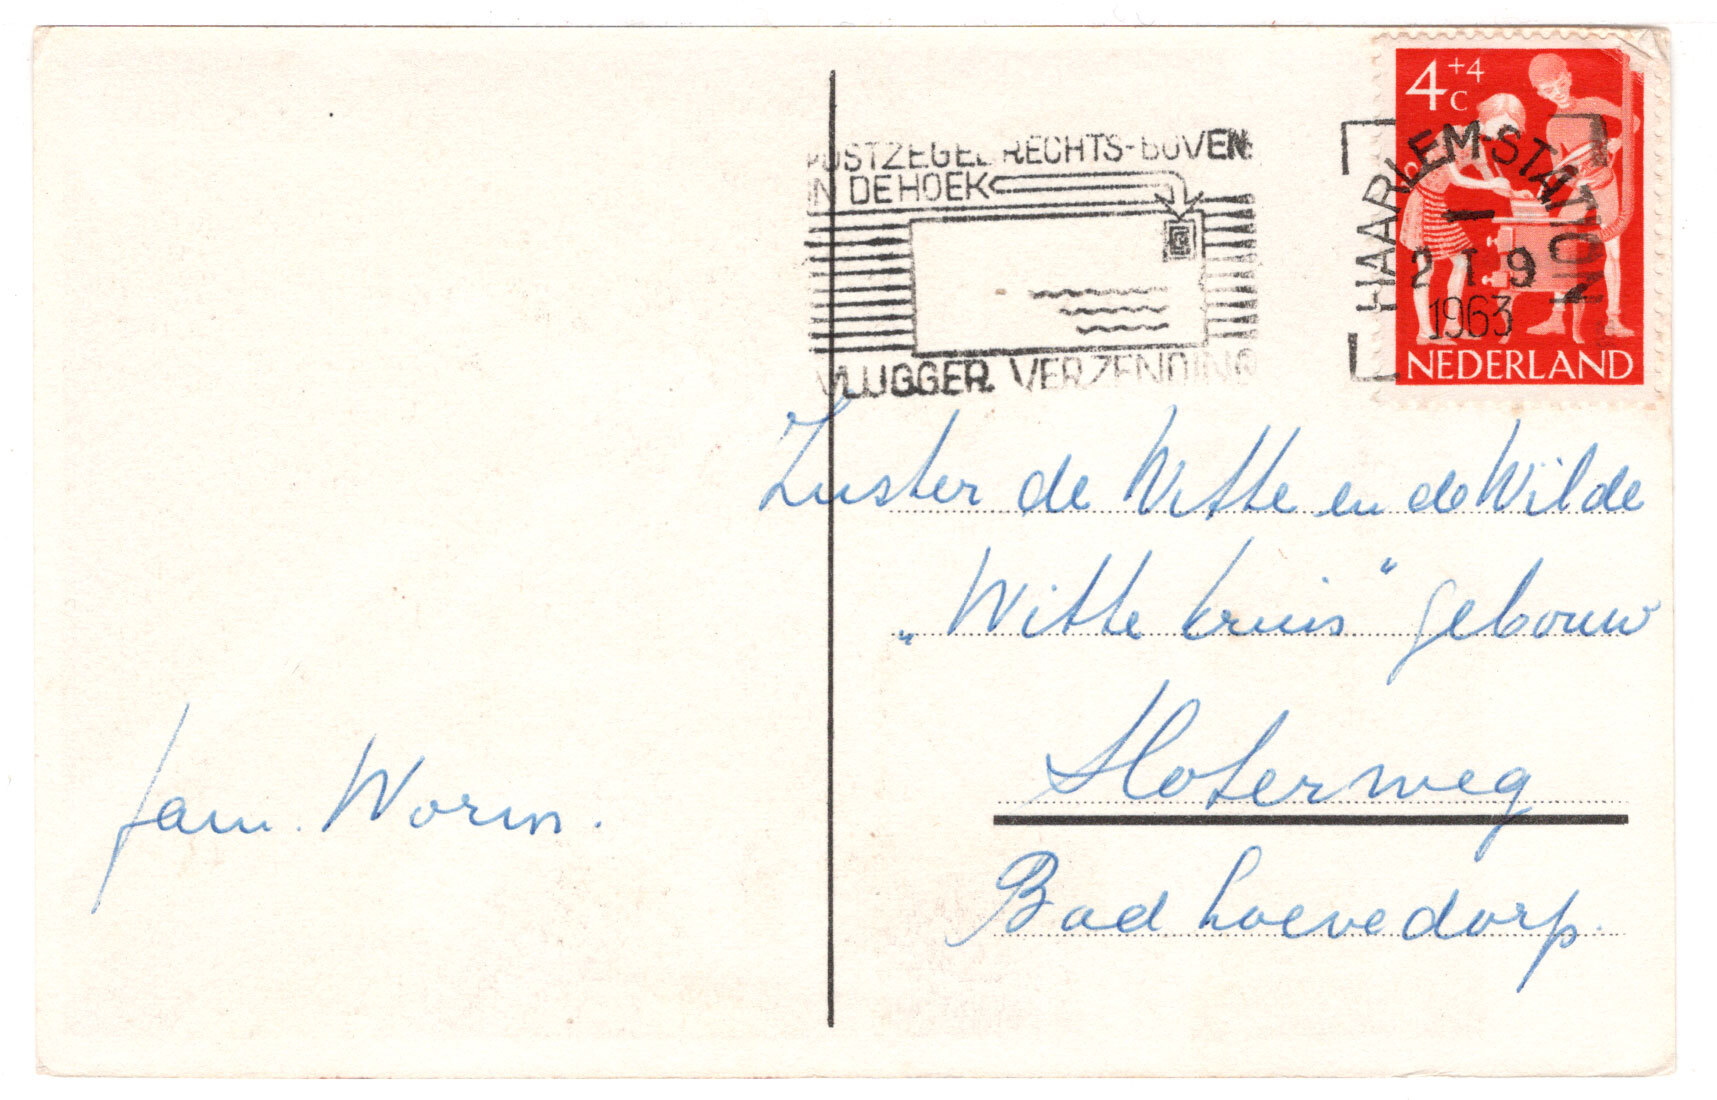 POSTZEGEL RECHTS-BOVEN
IN DE HOEK
VLUGGER VERZENDING
4+4
c
HAARLEM-STATION
1963
NEDERLAND
Zuster de Witte en de Wilde
„Witte kruis” gebouw
Sloterweg
Badhoevedorp.
fam. Worm.